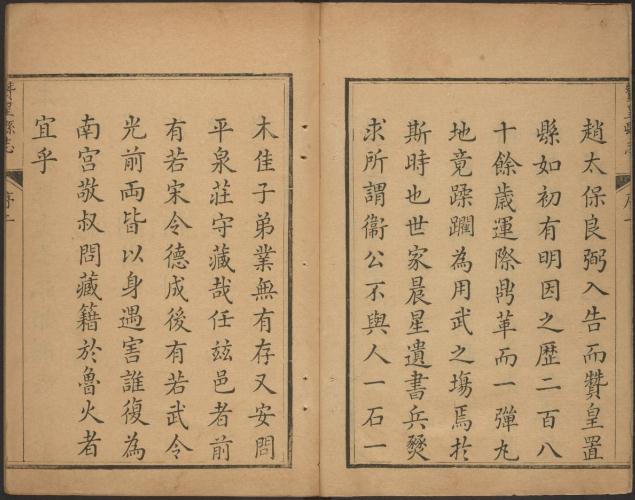 趙太保良弼入告而贊皇置
縣如初有明因之歷二百八
十餘歲運際鼎革而一彈丸
地竟蹂躙為用武之塲焉於
斯時也世家晨星遺書兵燹
求所謂衞公不與人一石一
木佳子弟業無有存又安問
平泉莊守藏哉任玆邑者前
有若宋令德成後有若武令
光前両皆以身遇害誰復為
南宮敬叔問藏籍於魯火者
宜乎
皇縣志
序二